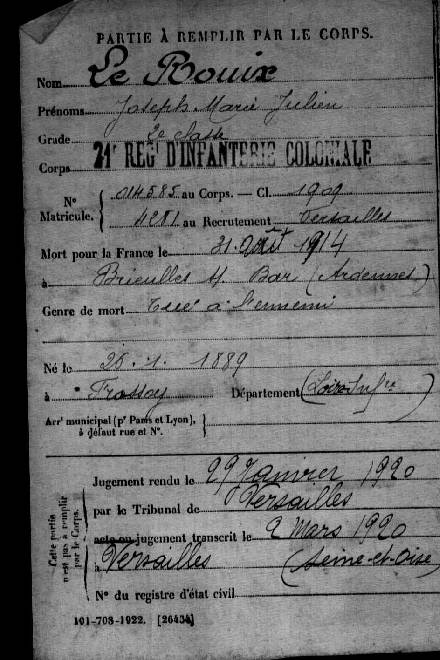 PARTIE À REMPLIR PAR LE CORPS.
Nom Le Rouix
Prénoms Joseph Marie Julien
Grade 2e classe
Corps 21e REGt D'INFANTERIE COLONIALE
Nº Matricule. 014585 au Corps. — Cl. 1909
4281 au Recrutement Versailles
Mort pour la France le 31 août 1914
à Brieulles s/ Bar (Ardennes)
Genre de mort Tué à l'ennemi
Né le 25. 1. 1889
à Département (Loire-Infre)
Arrt municipal (pr Paris et Lyon),
à défaut rue et Nº.
Jugement rendu le 29 Janvier 1920
par le Tribunal de Versailles
acte ou jugement transcrit le 2 mars 1920
à Versailles (Seine-et-Oise)
Nº du registre d'état civil
Cette partie
n'est pas à remplir
par le Corps.
101-708-1922. [26434]